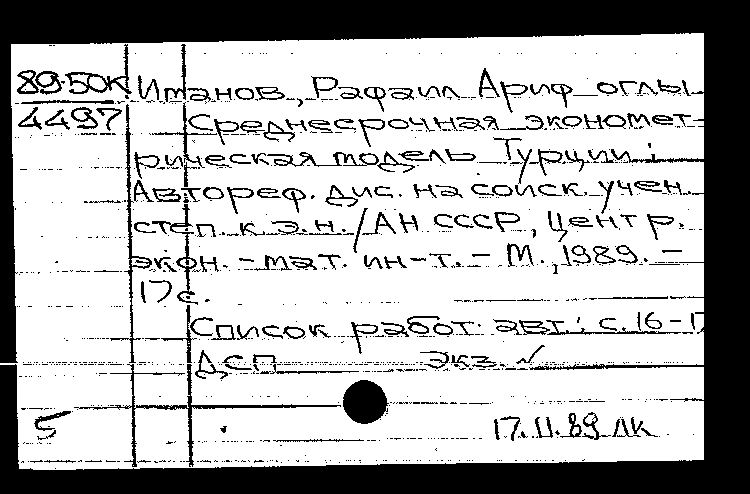 89-50К Иманов, Рафаил Ариф оглы
4497 Среднесрочная экономет-
рическая модель Турции :
Автореф. дис. на соиск. учен.
степ. к.э.н. / АН СССР, Центр.
экон.-мат. ин-т. - М., 1989. -
17 с.
Список работ авт.: с. 16-17
ДСП Экз. №
5 17.11.89 ЛК